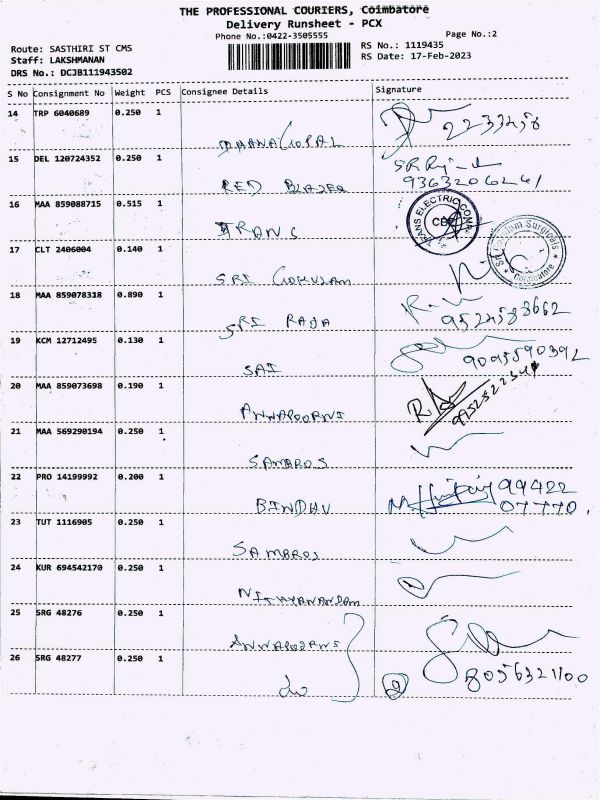 THE PROFESSIONAL COURIERS, Coimbatore
Delivery Runsheet - PCX
Phone No.:0422-3505555
Page No.:2
Route: SASTHIRI ST CMS
Staff: LAKSHMANAN
DRS No.: DCJB111943502
RS No.: 1119435
RS Date: 17-Feb-2023
S No Consignment No Weight PCS Consignee Details Signature
14 TRP 6040689 0.250 1 DHANAGOPAL
15 DEL 120724352 0.250 1 RED BLAZER 9363206241
16 MAA 859088715 0.515 1 TRANS TRANS ELECTRIC COMP. CBE
17 CLT 2406004 0.140 1 SRI GOKULAM Surgicals Coimbatore
18 MAA 859078318 0.890 1 SRI RAJA 9524583662
19 KCM 12712495 0.130 1 SAI 9095590392
20 MAA 859073698 0.190 1 ANNAPOORNI
21 MAA 569290194 0.250 1 SAMBROS
22 PRO 14199992 0.200 1 BINDHU 99422
07770
23 TUT 1116905 0.250 1 SAMBROS
24 KUR 694542170 0.250 1 NITHYANANDAM
25 SRG 48276 0.250 1 ANNAPOORNI
26 SRG 48277 0.250 1 8056321100